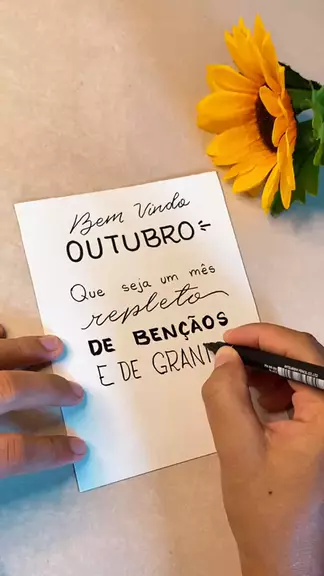 Bem Vindo
OUTUBRO
Que seja um mês
repleto
DE BENÇÃOS
E DE GRAN